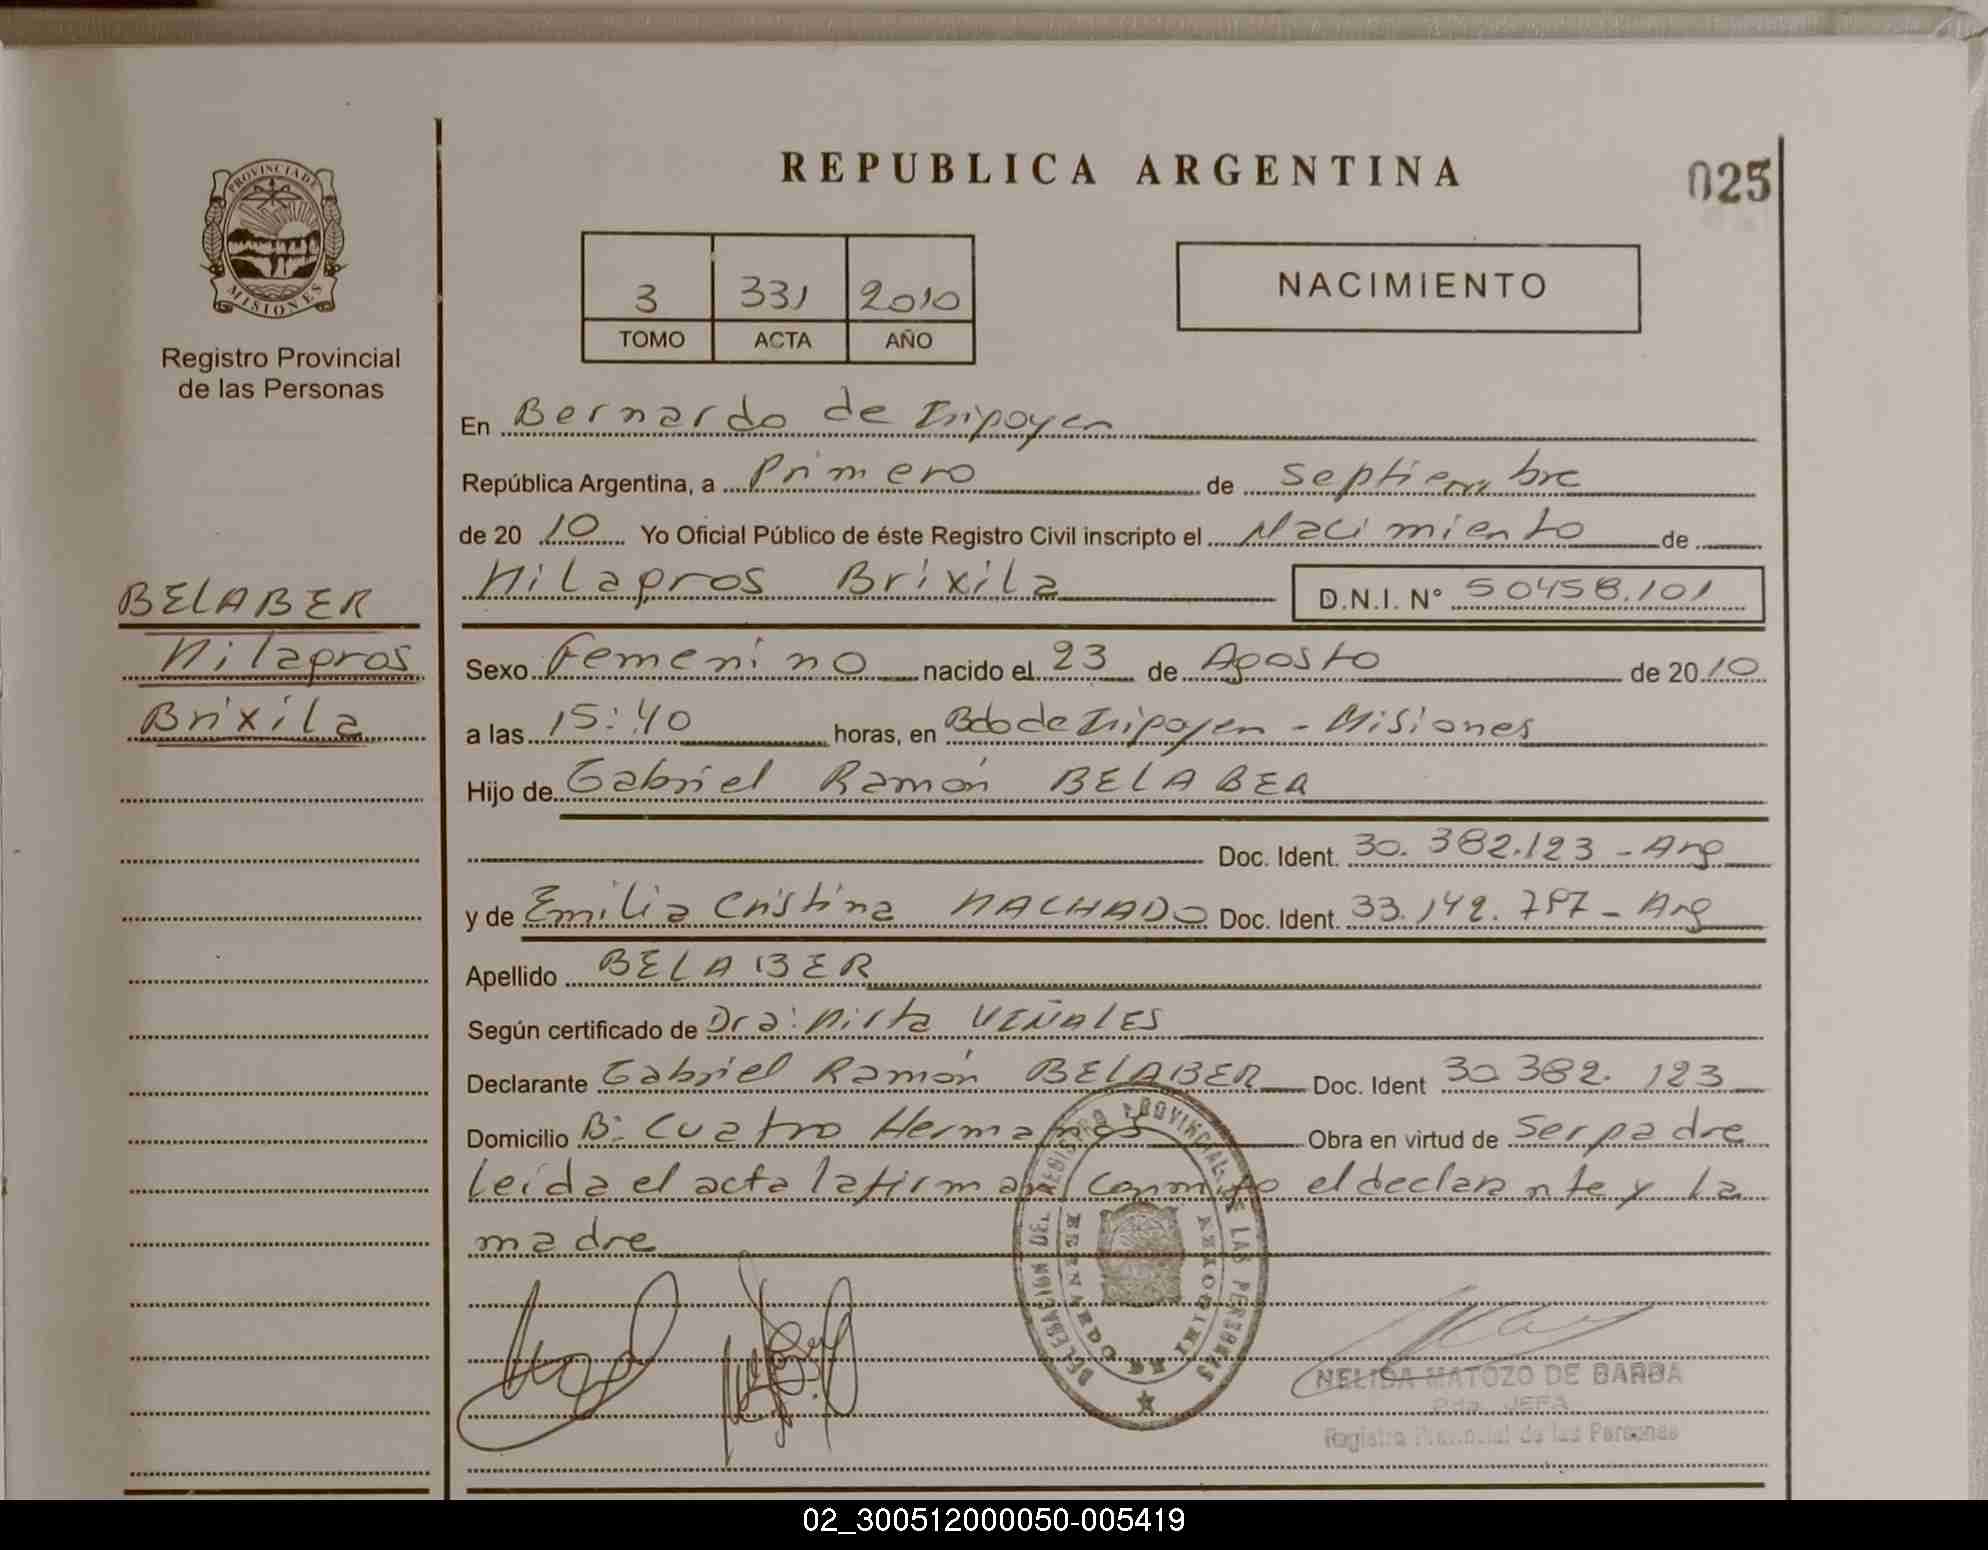 REPUBLICA ARGENTINA
025
PROVINCIA DE
MISIONES
Registro Provincial
de las Personas
3 331 2010
TOMO ACTA AÑO
NACIMIENTO
En Bernardo de Irigoyen
República Argentina, a Primero de septiembre
de 2010 Yo Oficial Público de éste Registro Civil inscripto el Nacimiento de
Milagros Brixila D.N.I. N° 50458.101
BELABER
Milagros
Brixila
Sexo Femenino nacido el 23 de Agosto de 2010
a las 15:40 horas, en Bdo de Irigoyen - Misiones
Hijo de Gabriel Ramón BELABER
Doc. Ident. 30.382.123 - Arg
y de Emilia Cristina MACHADO Doc. Ident. 33.142.797 - Arg
Apellido BELABER
Según certificado de Dra: Mirta VIÑALES
Declarante Gabriel Ramón BELABER Doc. Ident 30 382. 123
Domicilio B: Cuatro Hermanos Obra en virtud de Ser padre
leída el acta la firman conmigo el declarante y la
madre
DELEGACION DEL REGISTRO PROVINCIAL DE LAS PERSONAS
BERNARDO DE IRIGOYEN
NELIDA MATOZO DE BARBA
JEFA
Registro Provincial de las Personas
02_300512000050-005419